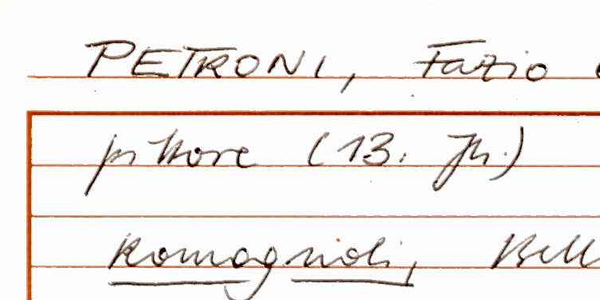 PETRONI, Fazio
pittore (13. Jh.)
Romagnoli, Bell